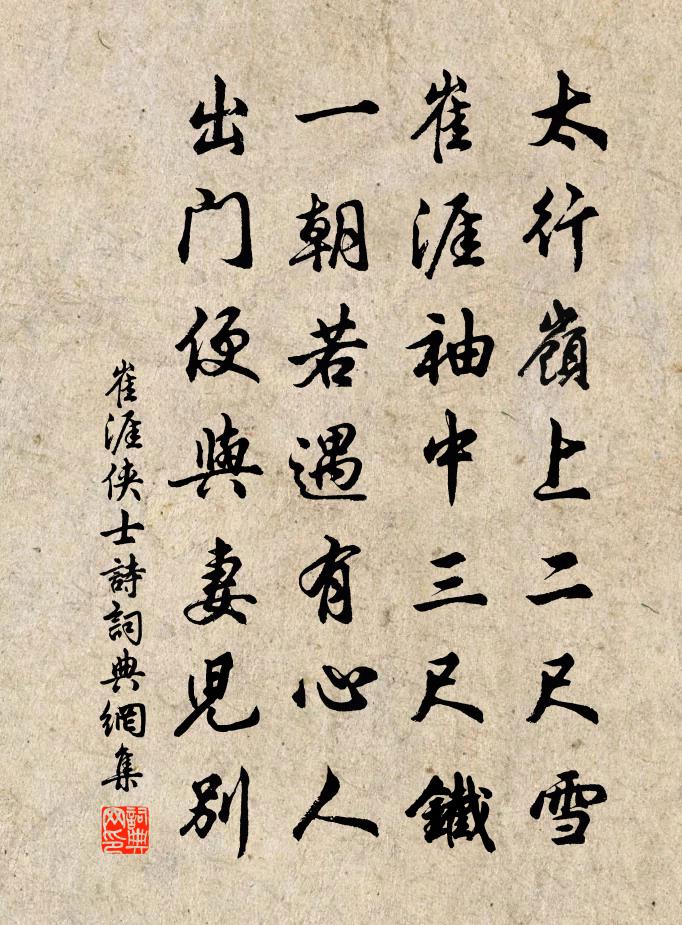 太行嶺上二尺雪
崔涯袖中三尺鐵
一朝若遇有心人
出门便與妻児別
崔涯侠士詩詞典網集
詞典網印